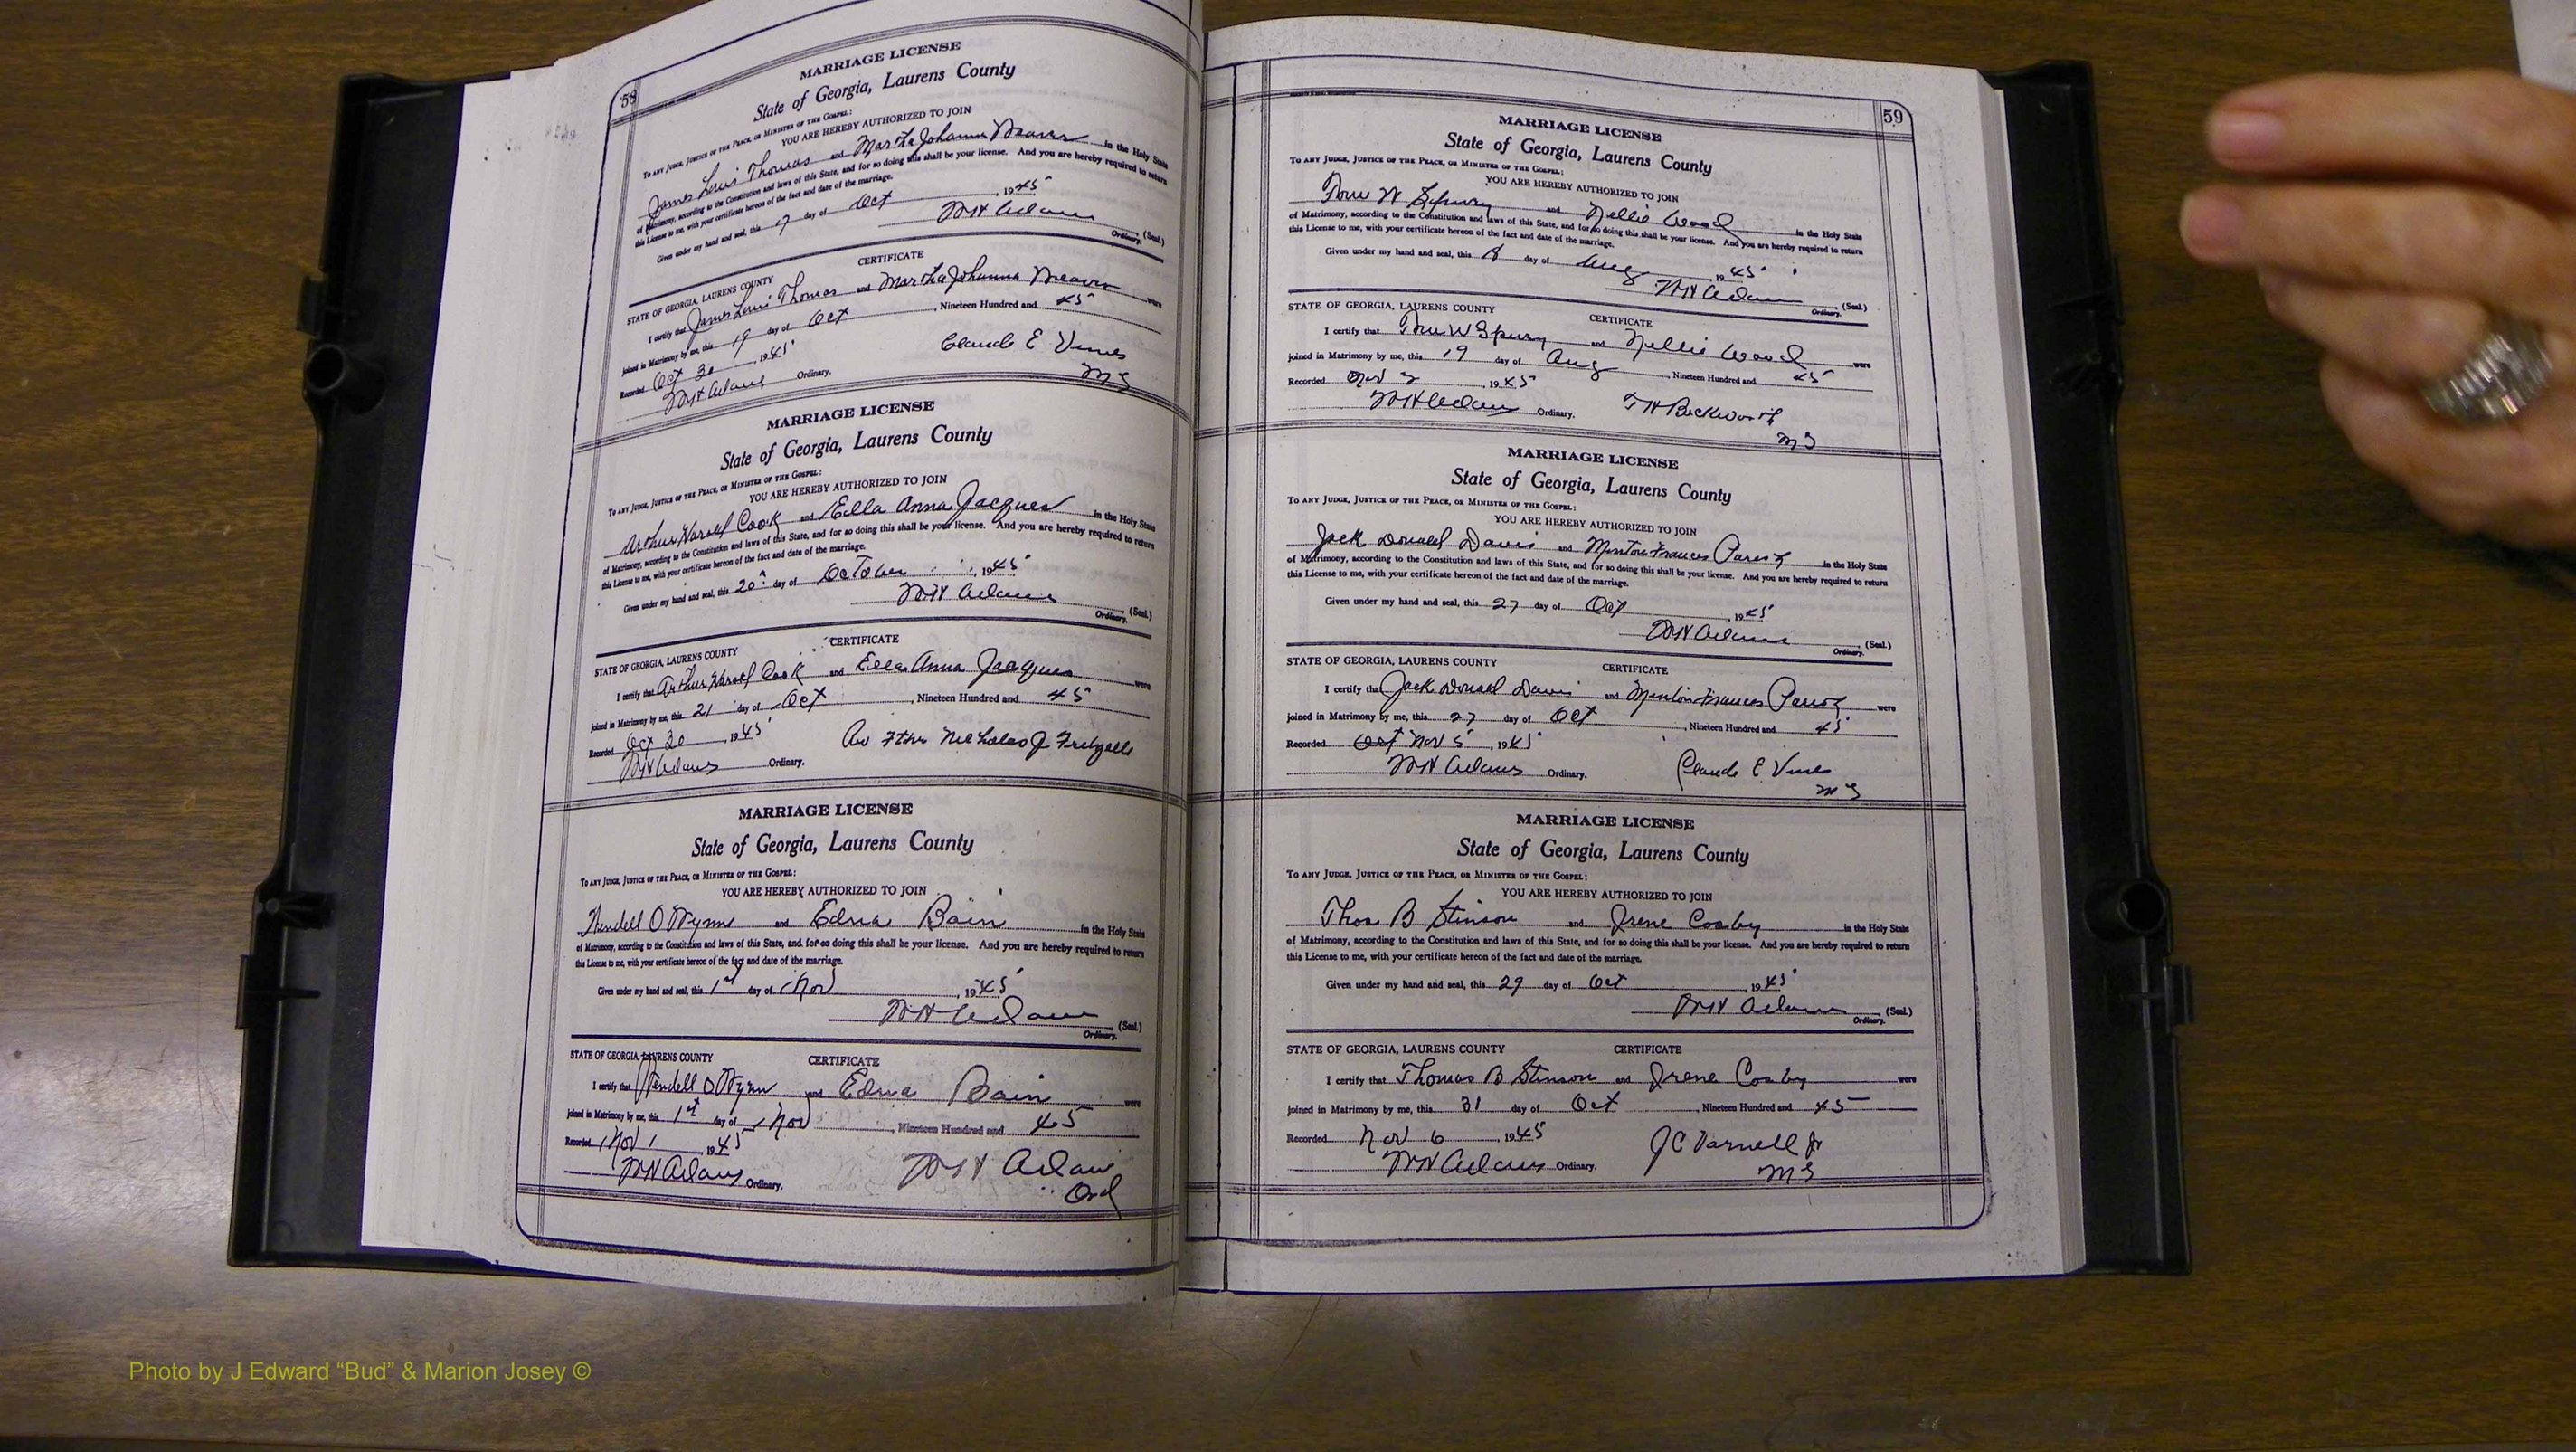 58
MARRIAGE LICENSE
State of Georgia, Laurens County
TO ANY JUDGE, JUSTICE OF THE PEACE, OR MINISTER OF THE GOSPEL:
YOU ARE HEREBY AUTHORIZED TO JOIN
James Lewis Thomas and Martha Johanna Weaver in the Holy State
of Matrimony, according to the Constitution and laws of this State, and for so doing this shall be your license. And you are hereby required to return
this License to me, with your certificate hereon of the fact and date of the marriage.
Given under my hand and seal, this 17 day of Oct, 1945
WH Adams (Seal.)
Ordinary.
CERTIFICATE
STATE OF GEORGIA, LAURENS COUNTY
I certify that James Lewis Thomas and Martha Johanna Weaver were
joined in Matrimony by me, this 19 day of Oct, Nineteen Hundred and 45
Recorded Oct 30, 1945 Claude E Vines
WH Adams Ordinary. MG
MARRIAGE LICENSE
State of Georgia, Laurens County
TO ANY JUDGE, JUSTICE OF THE PEACE, OR MINISTER OF THE GOSPEL:
YOU ARE HEREBY AUTHORIZED TO JOIN
Arthur Harold Cook and Ella Anna Jacques in the Holy State
of Matrimony, according to the Constitution and laws of this State, and for so doing this shall be your license. And you are hereby required to return
this License to me, with your certificate hereon of the fact and date of the marriage.
Given under my hand and seal, this 20 day of October, 1945
WH Adams (Seal.)
Ordinary.
CERTIFICATE
STATE OF GEORGIA, LAURENS COUNTY
I certify that Arthur Harold Cook and Ella Anna Jacques were
joined in Matrimony by me, this 21 day of Oct, Nineteen Hundred and 45
Recorded Oct 30, 1945 Rev Nicholas J
WH Adams Ordinary.
MARRIAGE LICENSE
State of Georgia, Laurens County
TO ANY JUDGE, JUSTICE OF THE PEACE, OR MINISTER OF THE GOSPEL:
YOU ARE HEREBY AUTHORIZED TO JOIN
Wendell O Wynn and Edna Bain in the Holy State
of Matrimony, according to the Constitution and laws of this State, and for so doing this shall be your license. And you are hereby required to return
this License to me, with your certificate hereon of the fact and date of the marriage.
Given under my hand and seal, this 1st day of Nov, 1945
WH Adams (Seal.)
Ordinary.
STATE OF GEORGIA, LAURENS COUNTY CERTIFICATE
I certify that Wendell O Wynn and Edna Bain were
joined in Matrimony by me, this 1st day of Nov, Nineteen Hundred and 45
Recorded Nov 1, 1945 WH Adams
WH Adams Ordinary. Ord
59
MARRIAGE LICENSE
State of Georgia, Laurens County
TO ANY JUDGE, JUSTICE OF THE PEACE, OR MINISTER OF THE GOSPEL:
YOU ARE HEREBY AUTHORIZED TO JOIN
Tom W Spivey and Nellie Wood in the Holy State
of Matrimony, according to the Constitution and laws of this State, and for so doing this shall be your license. And you are hereby required to return
this License to me, with your certificate hereon of the fact and date of the marriage.
Given under my hand and seal, this 18 day of Aug, 1945
WH Adams (Seal.)
Ordinary.
STATE OF GEORGIA, LAURENS COUNTY CERTIFICATE
I certify that Tom W Spivey and Nellie Wood were
joined in Matrimony by me, this 19 day of Aug, Nineteen Hundred and 45
Recorded Nov 2, 1945
WH Adams Ordinary. MG
MARRIAGE LICENSE
State of Georgia, Laurens County
TO ANY JUDGE, JUSTICE OF THE PEACE, OR MINISTER OF THE GOSPEL:
YOU ARE HEREBY AUTHORIZED TO JOIN
Jack Donald Davis and Frances in the Holy State
of Matrimony, according to the Constitution and laws of this State, and for so doing this shall be your license. And you are hereby required to return
this License to me, with your certificate hereon of the fact and date of the marriage.
Given under my hand and seal, this 27 day of Oct, 1945
WH Adams (Seal.)
Ordinary.
STATE OF GEORGIA, LAURENS COUNTY CERTIFICATE
I certify that Jack Donald Davis and Frances were
joined in Matrimony by me, this 27 day of Oct, Nineteen Hundred and 45
Recorded Oct Nov 5, 1945 Claude E Vines
WH Adams Ordinary. MG
MARRIAGE LICENSE
State of Georgia, Laurens County
TO ANY JUDGE, JUSTICE OF THE PEACE, OR MINISTER OF THE GOSPEL:
YOU ARE HEREBY AUTHORIZED TO JOIN
Thos B Stinson and Irene Cosby in the Holy State
of Matrimony, according to the Constitution and laws of this State, and for so doing this shall be your license. And you are hereby required to return
this License to me, with your certificate hereon of the fact and date of the marriage.
Given under my hand and seal, this 29 day of Oct, 1945
WH Adams (Seal.)
Ordinary.
STATE OF GEORGIA, LAURENS COUNTY CERTIFICATE
I certify that Thomas B Stinson and Irene Cosby were
joined in Matrimony by me, this 31 day of Oct, Nineteen Hundred and 45
Recorded Nov 6, 1945 JC Varnell Jr
WH Adams Ordinary. MG
Photo by J Edward “Bud” & Marion Josey ©